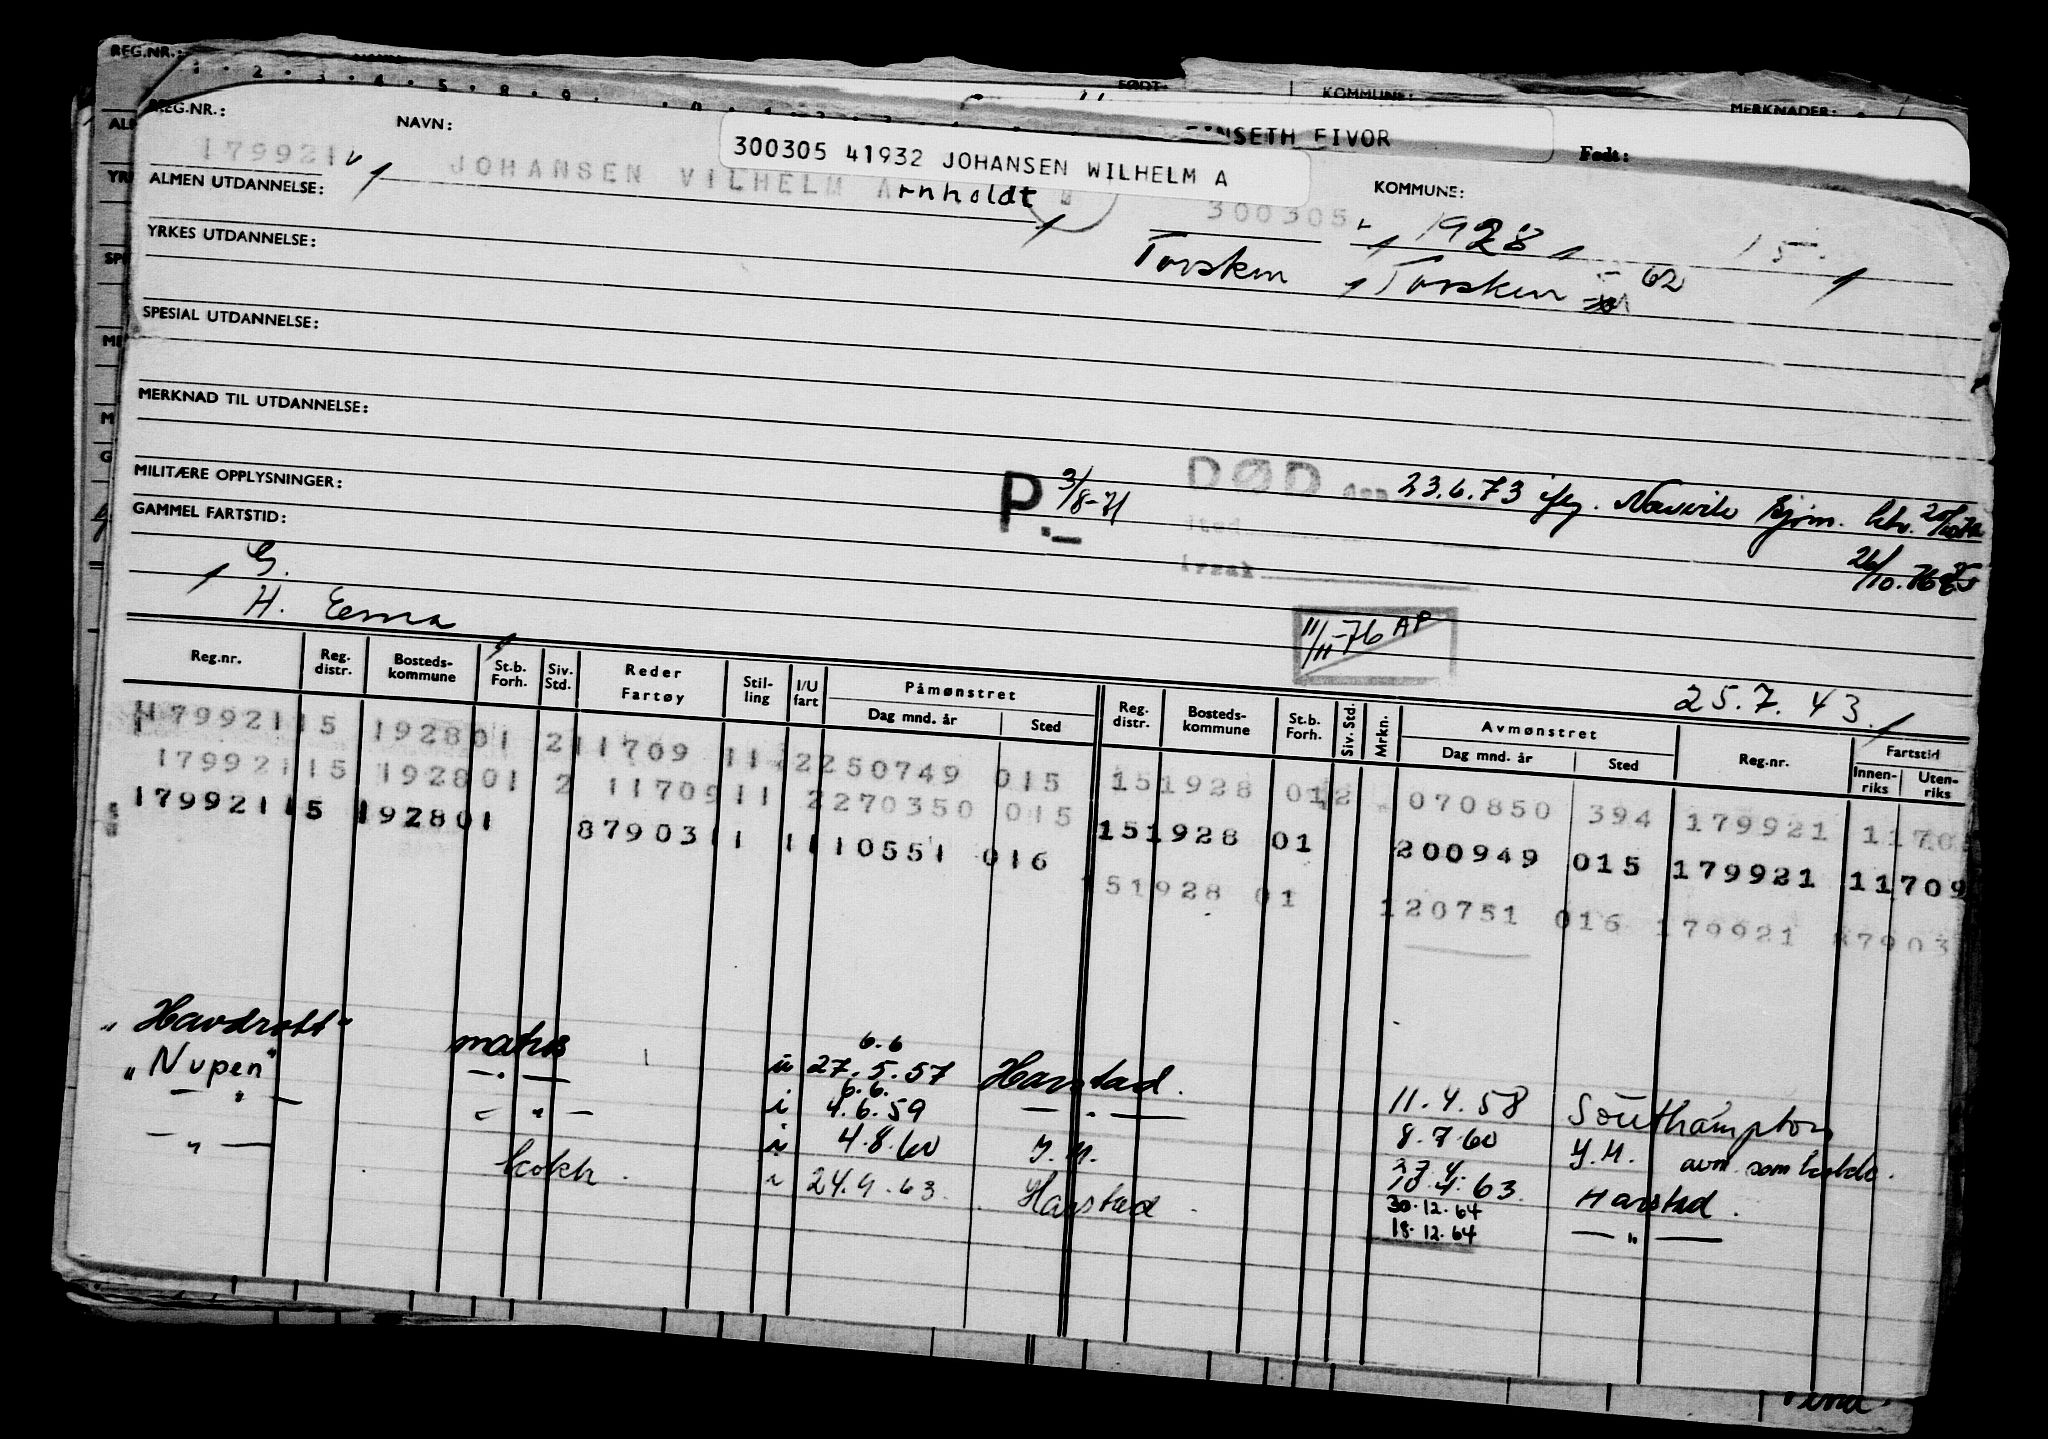 REG.NR.:
1 2 3 4 5 8 9
FØDT:
KOMMUNE:
MERKNADER:
REG.NR.:
NAVN:
NSETH EIVOR
Født:
300305 41932 JOHANSEN WILHELM A
179921
JOHANSEN VILHELM Arnholdt
300305
KOMMUNE:
1928
15
ALMEN UTDANNELSE:
Torsken
Torsken
62
YRKES UTDANNELSE:
SPESIAL UTDANNELSE:
MERKNAD TIL UTDANNELSE:
MILITÆRE OPPLYSNINGER:
P. 3/8-71
DØD den 23.6.73
sted
årsak
26/10.76
GAMMEL FARTSTID:
G.
H. Erna
11/11-76 AP
25.7.43
Reg.nr. Reg. distr. Bosteds-kommune St.b. Forh. Siv. Std. Reder Fartøy Stil-ling I/U fart Påmønstret Dag mnd. år Sted Reg. distr. Bosteds-kommune St.b. Forh. Siv. Std. Mrkn. Avmønstret Dag mnd. år Sted Reg.nr. Fartstid Innen-riks Uten-riks
179921 15 1928 01 2 11709 11 2 250749 015 15 1928 01 2 070850 394 179921 1170
179921 15 1928 01 2 11709 11 2 270350 015 15 1928 01 200949 015 179921 11709
179921 15 1928 01 87903 11 1 110551 016 15 1928 01 120751 016 179921 87903
"Havdrott" matros u 27.5.57 Harstad 11.4.58 Southampton
6.6
"Nupen" — " — i 4.6.59 — " — 8.7.60 Y.M. avm. som
6.6.
— " — — " — 4.8.60 Y.M. 4.63 Harstad
— " — kokk i 24.9.63 Harstad 30.12.64 — " —
18.12.64